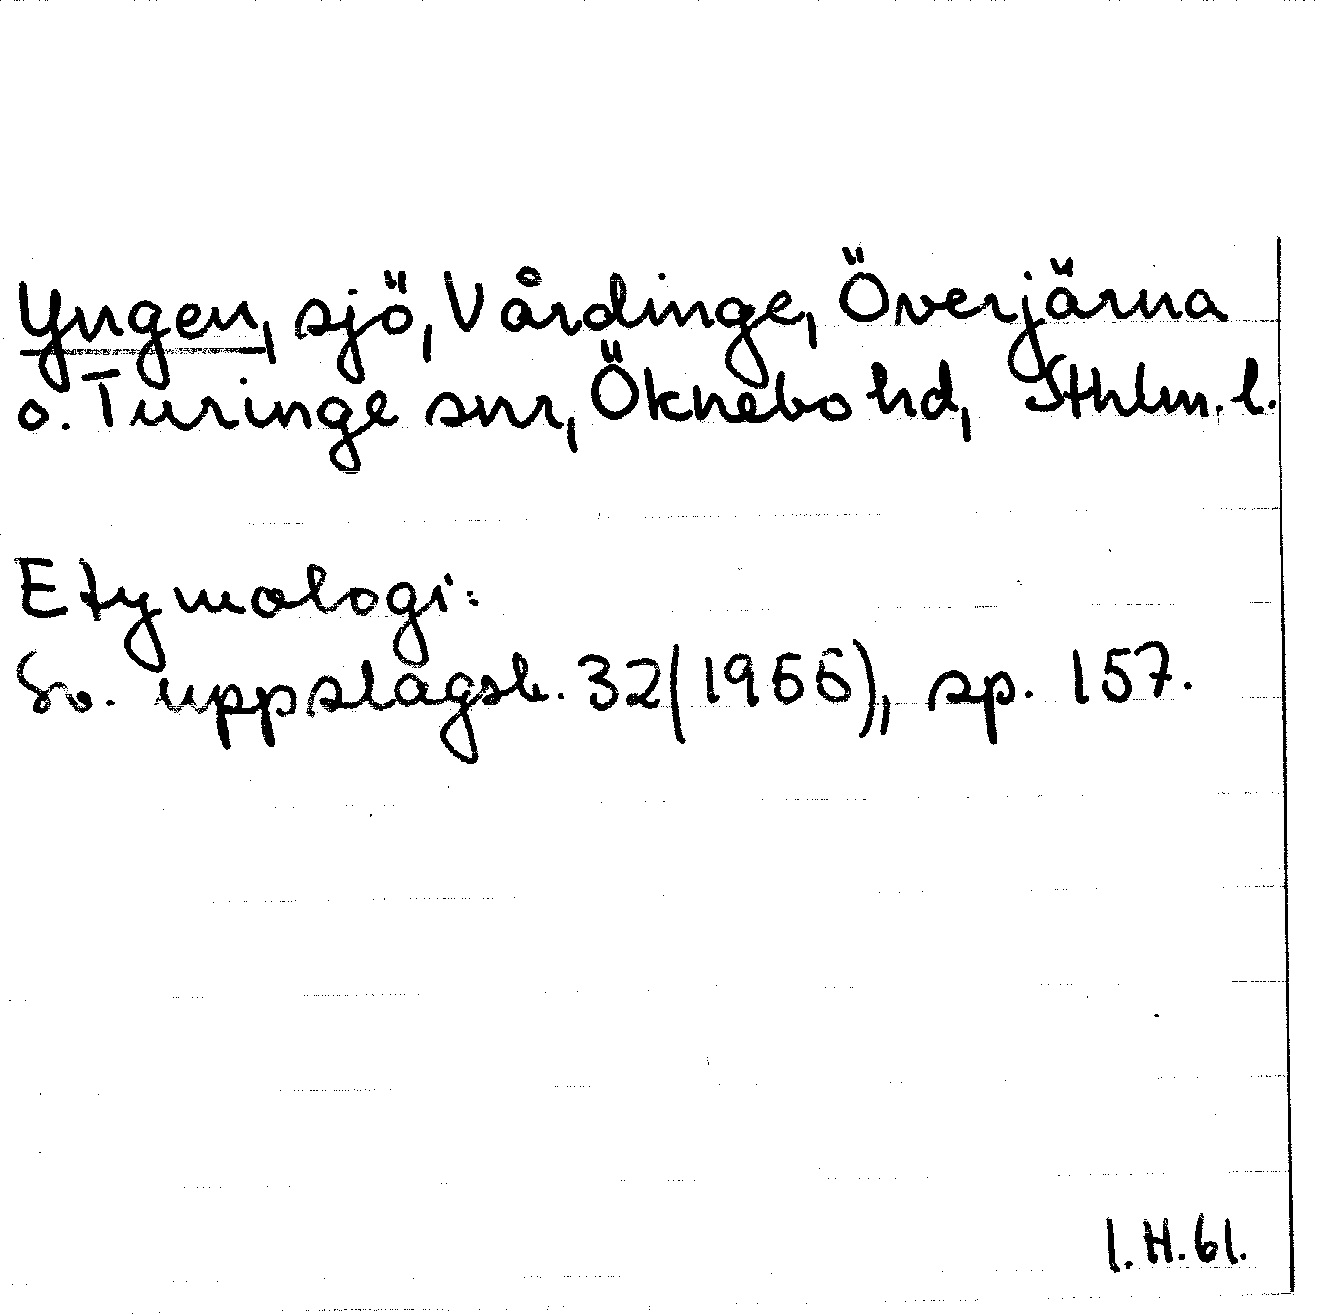 Yngen, sjö, Vårdinge, Överjärna
o. Turinge snr, Öknebo hd, Sthlm. l.
Etymologi:
Sv. uppslagsb. 32(1955), sp. 157.
I.H.61.